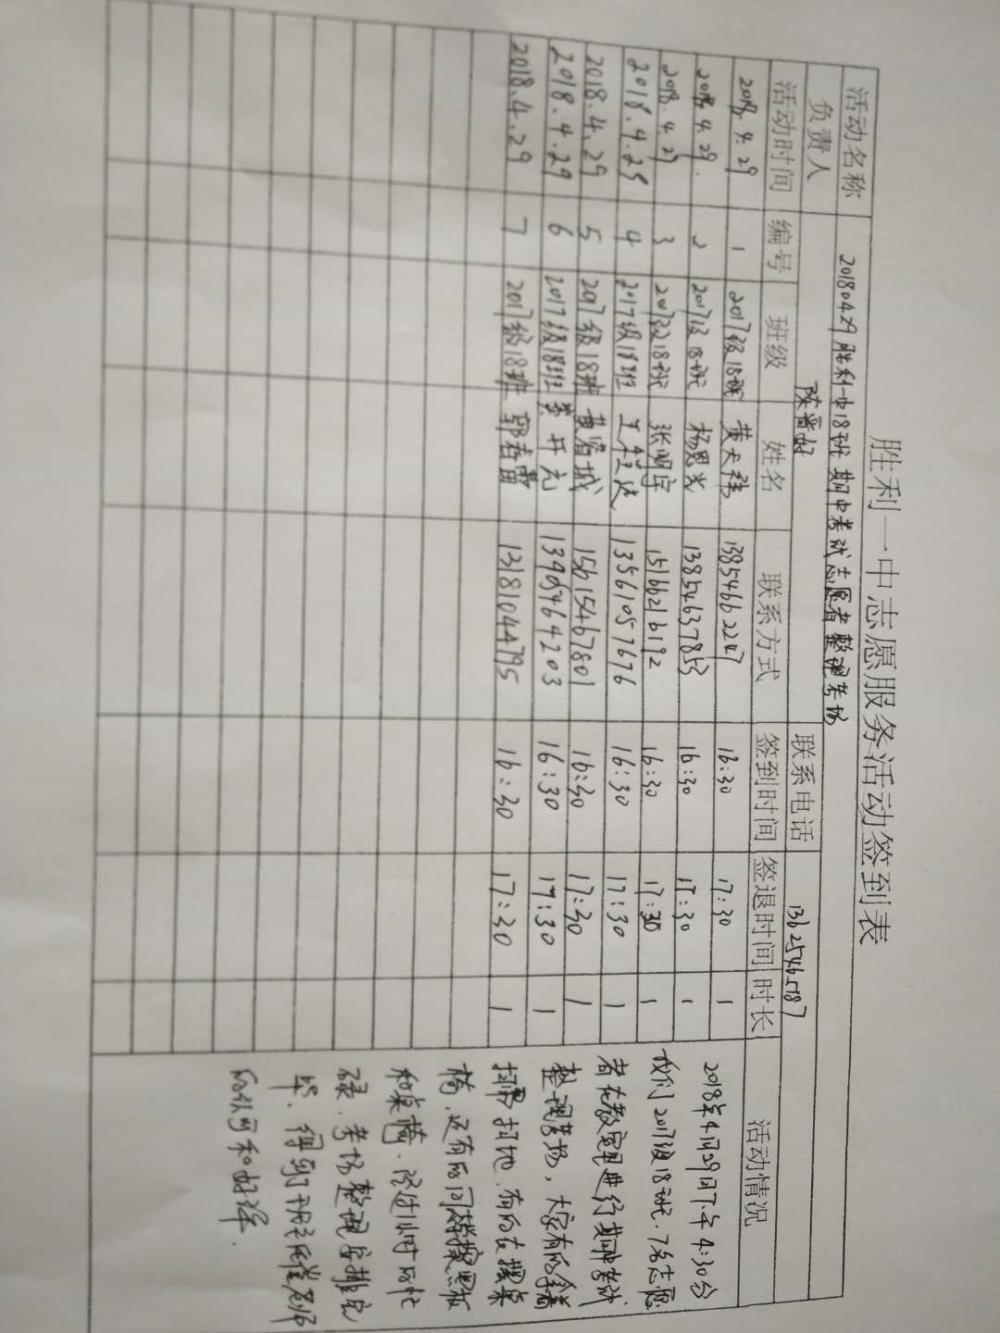 胜利一中志愿服务活动签到表
活动名称 20180429胜利一中18班期中考试志愿者整理考场
负责人 联系电话 13625465787
活动时间 编号 班级 姓名 联系方式 签到时间 签退时间 时长 活动情况
2018.4.29 1 2017级18班 黄天 13854662247 16:30 17:30 1
2018.4.29. 2 2017级18班 杨思光 13854637853 16:30 17:30 1
2018.4.29 3 2017级18班 张明宇 15166216192 16:30 17:30 1
2018.4.29 4 2017级18班 王 13561057676 16:30 17:30 1
2018.4.29 5 2017级18班 黄 城 15615467801 16:30 17:30 1
2018.4.29 6 2017级18班 开元 13905464203 16:30 17:30 1
2018.4.29 7 2017级18班 郭春雷 13181044795 16:30 17:30 1
2018年4月29日下午4:30分
我们2017级18班.7名志愿
者在教室里进行期中考试
整理考场,大家有的拿着
扫帚扫地.有的在摆桌
椅,还有的同学擦黑板
和桌椅.经过1小时的忙
碌.考场整理安排完
毕.得到了班主任
的认可和好评.